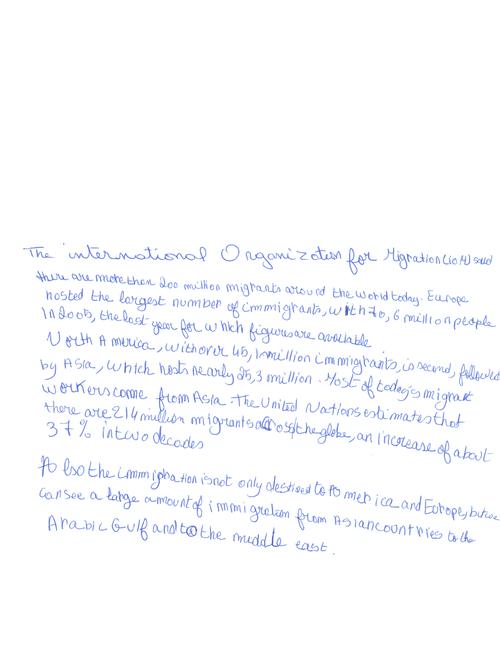 The international Organization for Migration (IOM) said
there are more than 200 million migrants around the world today. Europe
hosted the largest number of immigrants, with 70,6 million people
In 2005, the last year for which figures are available
North America, with over 45,1 million immigrants, is second, followed
by Asia, which hosts nearly 25,3 million. Most of today's migrant
workers come from Asia. The United Nations estimates that
there are 214 million migrants across the globe, an increase of about
37% in two decades
Also the immigration is not only destined to America and Europe, but we
can see a large amount of immigration from Asian countries to the
Arabic Gulf and to the middle east.